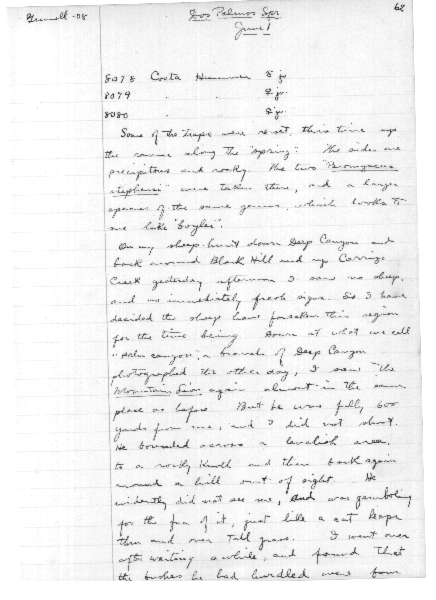 Grinnell - 08
Dos Palmos Spr.
62
June 1
8078 Costa Hummer ♀ jv.
8079 " " ♀ jv.
8080 " " ♀ jv.
Some of the traps were re-set, this time up
the ravine along the "spring". The sides are
precipitous and rocky. The two "Peromyscus
stephensi" were taken there, and a larger
species of the same genus, which looks to
me like "boylei".
On my sheep-hunt down Deep Canyon and
back around Black Hill and up Carrizo
Creek yesterday afternoon I saw no sheep,
and no immediately fresh signs. So I have
decided the sheep have forsaken this region
for the time being. Down at what we call
"palm canyon", a branch of Deep Canyon
photographed the other day, I saw the
Mountain Lion again almost in the same
place as before. But he was fully 600
yards from me, and I did not shoot.
He bounded across a levelish area,
to a rocky knoll and then back again
around a hill out of sight. He
evidently did not see me, and was gamboling
for the fun of it, just like a cat leaps
thru and over tall grass. I went over
after waiting awhile, and found that
the bushes he had hurdled were from